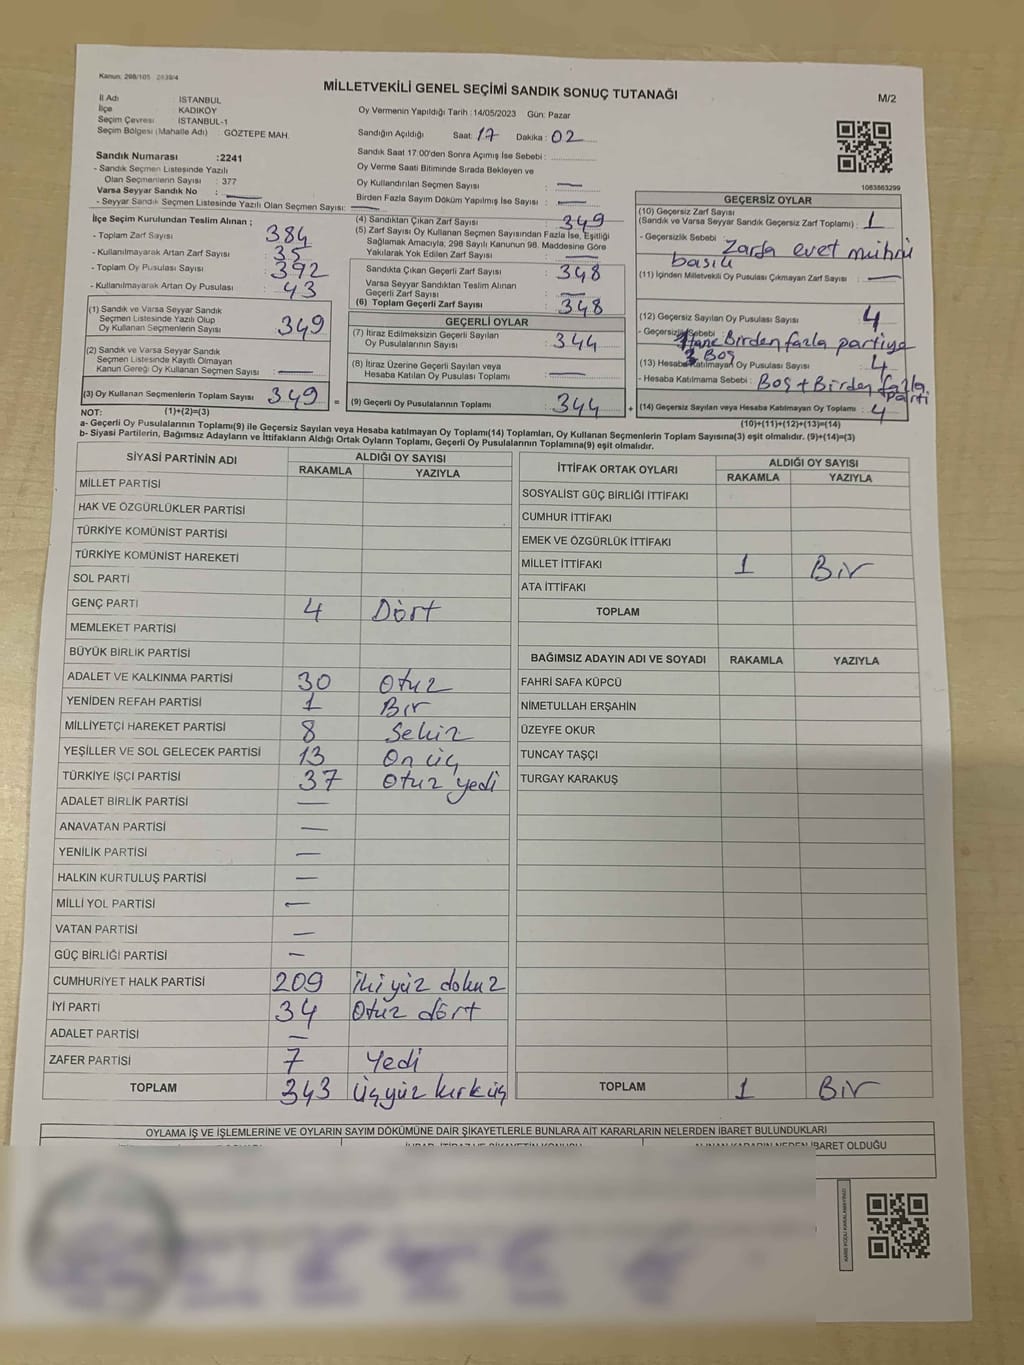 Kanun: 298/105 2839/4
MİLLETVEKİLİ GENEL SEÇİMİ SANDIK SONUÇ TUTANAĞI
M/2
İl Adı : İSTANBUL
İlçe : KADIKÖY
Seçim Çevresi : İSTANBUL-1
Seçim Bölgesi (Mahalle Adı) : GÖZTEPE MAH.
Oy Vermenin Yapıldığı Tarih : 14/05/2023 Gün: Pazar
Sandığın Açıldığı Saat: 17 Dakika: 02
Sandık Saat 17:00'den Sonra Açımış İse Sebebi :
Oy Verme Saati Bitiminde Sırada Bekleyen ve
Oy Kullandırılan Seçmen Sayısı : —
Birden Fazla Sayım Döküm Yapılmış İse Sayısı : —
1083863299
Sandık Numarası :2241
- Sandık Seçmen Listesinde Yazılı
Olan Seçmenlerin Sayısı : 377
Varsa Seyyar Sandık No : —
- Seyyar Sandık Seçmen Listesinde Yazılı Olan Seçmen Sayısı: —
İlçe Seçim Kurulundan Teslim Alınan ;
- Toplam Zarf Sayısı : 384
- Kullanılmayarak Artan Zarf Sayısı : 35
- Toplam Oy Pusulası Sayısı : 392
- Kullanılmayarak Artan Oy Pusulası : 43
(1) Sandık ve Varsa Seyyar Sandık
Seçmen Listesinde Yazılı Olup
Oy Kullanan Seçmenlerin Sayısı : 349
(2) Sandık ve Varsa Seyyar Sandık
Seçmen Listesinde Kayıtlı Olmayan
Kanun Gereği Oy Kullanan Seçmen Sayısı : —
(3) Oy Kullanan Seçmenlerin Toplam Sayısı : 349 =
(1)+(2)=(3)
(4) Sandıktan Çıkan Zarf Sayısı : 349
(5) Zarf Sayısı Oy Kullanan Seçmen Sayısından Fazla İse, Eşitliği
Sağlamak Amacıyla, 298 Sayılı Kanunun 98. Maddesine Göre
Yakılarak Yok Edilen Zarf Sayısı : —
Sandıkta Çıkan Geçerli Zarf Sayısı : 348
Varsa Seyyar Sandıktan Teslim Alınan
Geçerli Zarf Sayısı : —
(6) Toplam Geçerli Zarf Sayısı : 348
GEÇERLİ OYLAR
(7) İtiraz Edilmeksizin Geçerli Sayılan
Oy Pusulalarının Sayısı : 344
(8) İtiraz Üzerine Geçerli Sayılan veya
Hesaba Katılan Oy Pusulası Toplamı : —
(9) Geçerli Oy Pusulalarının Toplamı : 344 +
GEÇERSİZ OYLAR
(10) Geçersiz Zarf Sayısı
(Sandık ve Varsa Seyyar Sandık Geçersiz Zarf Toplamı) : 1
- Geçersizlik Sebebi : Zarfa evet mührü
basılı
(11) İçinden Milletvekili Oy Pusulası Çıkmayan Zarf Sayısı : —
(12) Geçersiz Sayılan Oy Pusulası Sayısı : 4
- Geçersizlik Sebebi : tane Birden fazla partiye
Boş
(13) Hesaba Katılmayan Oy Pusulası Sayısı : 4
- Hesaba Katılmama Sebebi : Boş + Birden fazla
parti
(14) Geçersiz Sayılan veya Hesaba Katılmayan Oy Toplamı : 4
(10)+(11)+(12)+(13)=(14)
NOT:
a- Geçerli Oy Pusulalarının Toplamı(9) ile Geçersiz Sayılan veya Hesaba katılmayan Oy Toplamı(14) Toplamları, Oy Kullanan Seçmenlerin Toplam Sayısına(3) eşit olmalıdır. (9)+(14)=(3)
b- Siyasi Partilerin, Bağımsız Adayların ve İttifakların Aldığı Ortak Oyların Toplamı, Geçerli Oy Pusulalarının Toplamına(9) eşit olmalıdır.
SİYASİ PARTİNİN ADI ALDIĞI OY SAYISI
RAKAMLA YAZIYLA
MİLLET PARTİSİ
HAK VE ÖZGÜRLÜKLER PARTİSİ
TÜRKİYE KOMÜNİST PARTİSİ
TÜRKİYE KOMÜNİST HAREKETİ
SOL PARTİ
GENÇ PARTİ 4 Dört
MEMLEKET PARTİSİ
BÜYÜK BİRLİK PARTİSİ
ADALET VE KALKINMA PARTİSİ 30 Otuz
YENİDEN REFAH PARTİSİ 1 Bir
MİLLİYETÇİ HAREKET PARTİSİ 8 Sekiz
YEŞİLLER VE SOL GELECEK PARTİSİ 13 On üç
TÜRKİYE İŞÇİ PARTİSİ 37 Otuz yedi
ADALET BİRLİK PARTİSİ —
ANAVATAN PARTİSİ —
YENİLİK PARTİSİ —
HALKIN KURTULUŞ PARTİSİ —
MİLLİ YOL PARTİSİ —
VATAN PARTİSİ —
GÜÇ BİRLİĞİ PARTİSİ —
CUMHURİYET HALK PARTİSİ 209 İki yüz dokuz
İYİ PARTİ 34 Otuz dört
ADALET PARTİSİ —
ZAFER PARTİSİ 7 Yedi
TOPLAM 343 Üçyüz kırküç
İTTİFAK ORTAK OYLARI ALDIĞI OY SAYISI
RAKAMLA YAZIYLA
SOSYALİST GÜÇ BİRLİĞİ İTTİFAKI
CUMHUR İTTİFAKI
EMEK VE ÖZGÜRLÜK İTTİFAKI
MİLLET İTTİFAKI 1 Bir
ATA İTTİFAKI
TOPLAM
BAĞIMSIZ ADAYIN ADI VE SOYADI RAKAMLA YAZIYLA
FAHRİ SAFA KÜPCÜ
NİMETULLAH ERŞAHİN
ÜZEYFE OKUR
TUNCAY TAŞÇI
TURGAY KARAKUŞ
TOPLAM 1 Bir
OYLAMA İŞ VE İŞLEMLERİNE VE OYLARIN SAYIM DÖKÜMÜNE DAİR ŞİKAYETLERLE BUNLARA AİT KARARLARIN NELERDEN İBARET BULUNDUKLARI
İHBAR, İTİRAZ VE ŞİKAYETİN KONUSU ALINAN KARARIN NEDEN İBARET OLDUĞU
KARE KODU KARALAMAYINIZ!